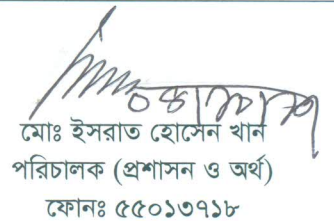 মোঃ ইসরাত হোসেন খান
পরিচালক (প্রশাসন ও অর্থ)
ফোনঃ ৫৫০১৩৭১৮